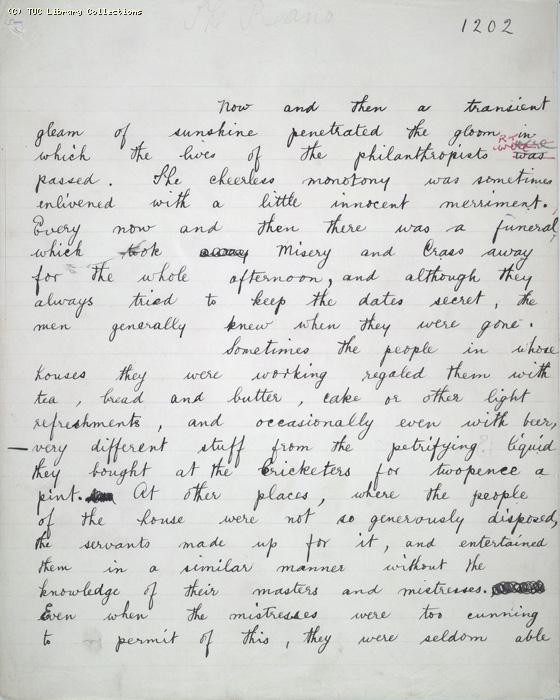 (C) TUC Library Collections
The Piano
1202
Now and then a transient
gleam of sunshine penetrated the gloom in
which the lives of the philanthropists were was
passed. The cheerless monotony was sometimes
enlivened with a little innocent merriment.
Every now and then there was a funeral
which took away Misery and Crass away
for the whole afternoon, and although they
always tried to keep the dates secret, the
men generally knew when they were gone.
Sometimes the people in whose
houses they were working regaled them with
tea, bread and butter, cake or other light
refreshments, and occasionally even with beer,
— very different stuff from the petrifying liquid
they bought at the Cricketers for twopence a
pint. At other places, where the people
of the house were not so generously disposed,
the servants made up for it, and entertained
them in a similar manner without the
knowledge of their masters and mistresses.
Even when the mistresses were too cunning
to permit of this, they were seldom able